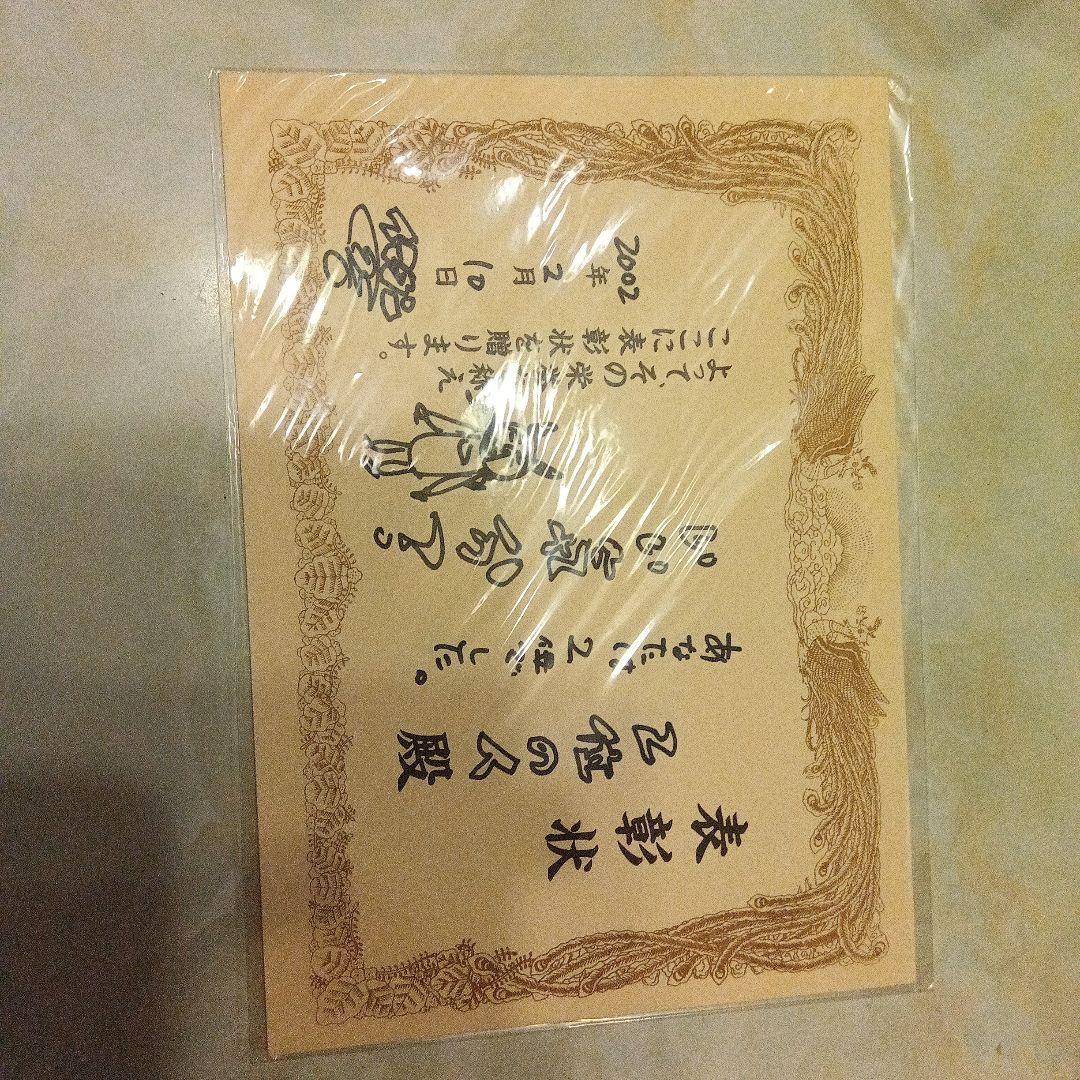 表彰状
2位の人殿
あなたは2位でした。
よって、その栄誉を称え
ここに表彰状を贈ります。
2002年2月10日